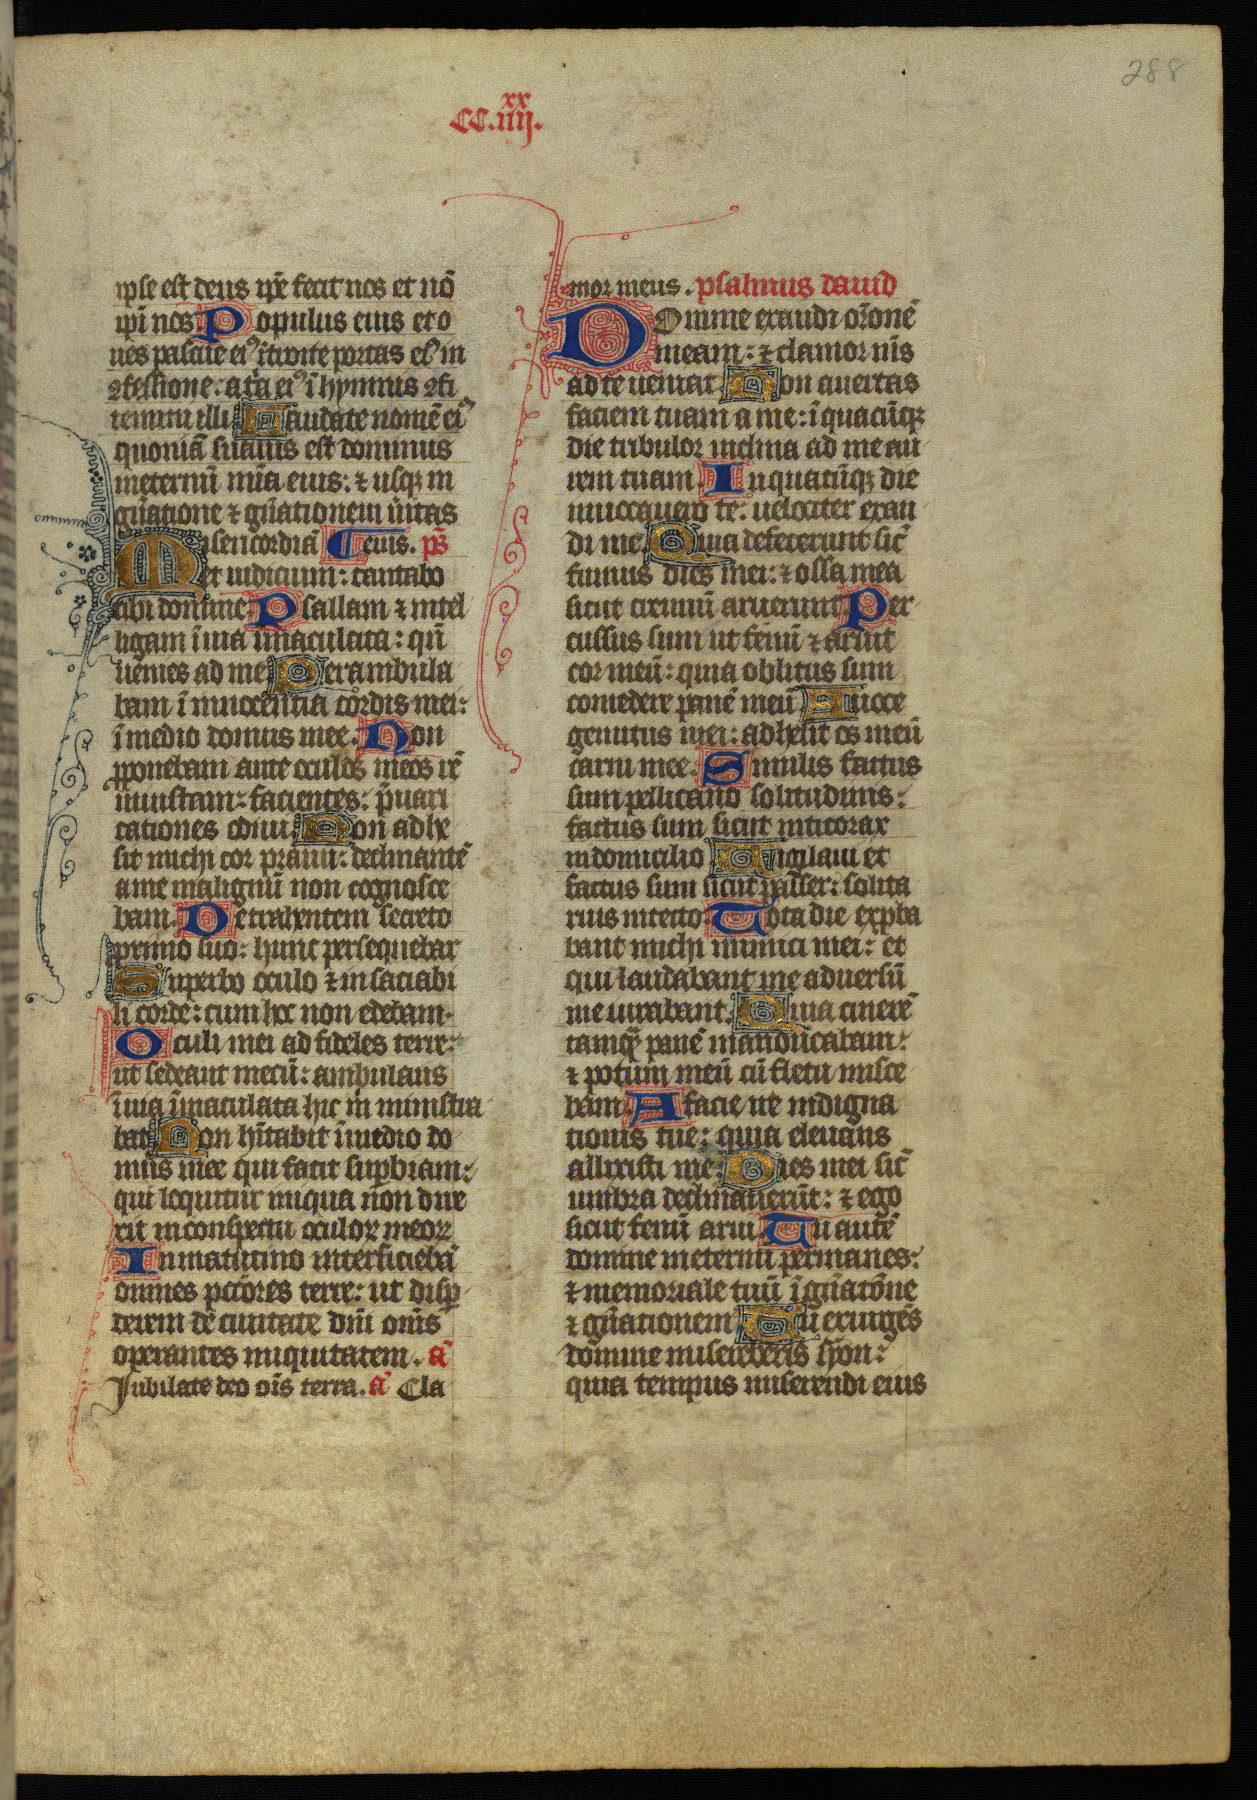 288
xx
CC.iiij.
ipse est deus ip̄e fecit nos et nō
ipi nos. Populus eius et o
ues pascue ei⁹ ītroite portas ei⁹ in
ꝯfessione: at̄a ei⁹ ī hymnis ꝯfi
temini illi Laudate nomē ei⁹
quoniā suauis est dominus
ineternū mīa eius: ⁊ usqꝫ in
gn̄atione ⁊ gn̄ationem ūitas
Misericordiā eius. ps̄
et iudicium: cantabo
tibi domine Psallam ⁊ intel
ligam ī uia īmaculata: qn̄
uenies ad me Perambula
bam ī innocentia cordis mei:
ī medio domus mee. Non
ꝓponebam ante oculos meos rē
iniustam: facientes: p̄uari
cationes odiui. Non adhe
sit michi cor prauū: declinantē
a me malignū non cognosce
bam. Detrahentem secreto
primo suo: hunc persequebar
Superbo oculo ⁊ insaciabi
li corde: cum hoc non edebam.
Oculi mei ad fideles terre:
ut sedeant mecū: ambulans
ī uia īmaculata hic m̄ ministra
bat Non hītabit ī medio do
mus mee qui facit supbiam:
qui loquitur iniqua non dire
xit inconspectu oculoꝝ meoꝝ
In matutino interficiebā
omnes pctōres terre: ut disp
derem de ciuitate dn̄i om̄s
operantes iniquitatem. a͞
Iubilate deo oīs terra. a͞ Cla
mor meus. psalmus dauid
Domine exaudi orōnē
meam: ⁊ clamor m̄s
ad te ueniat Non auertas
faciem tuam a me: ī quacūqꝫ
die tribulor inclina ad me au
rem tuam In quacūqꝫ die
inuocauero te: uelociter exau
di me. Quia defecerunt sic̄
fumus dies mei: ⁊ ossa mea
sicut cremiū aruerunt Per
cussus sum ut fenū ⁊ aruit
cor meū: quia oblitus sum
comedere panē meū A uoce
gemitus mei: adhesit os meū
carni mee. Similis factus
sum pellicano solitudinis:
factus sum sicut niticorax
in domicilio Uigilaui et
factus sum sicut passer: solita
rius intecto. Tota die exproba
bant michi inimici mei: et
qui laudabant me aduersū
me iurabant. Quia cinerē
tamqꝫ panē manducabam:
⁊ potum meū cū fletu misce
bam A facie ire indigna
tionis tue: quia eleuans
allixisti me: Dies mei sic̄
umbra declinauerūt: ⁊ ego
sicut fenū arui. Tu autē
domine ineternū permanes:
⁊ memoriale tuū ī gn̄atōne
⁊ gn̄ationem Tu exurgēs
domine misereberis syon:
quia tempus miserendi eius